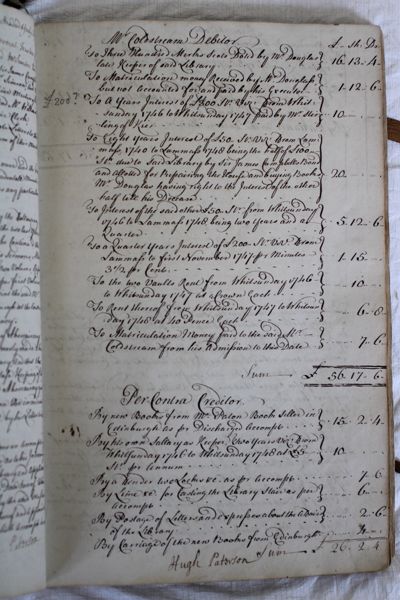 Mr Coldstream Debitor £ Sh. D.
To Three Hundred Merks Scots Paid by Mr Douglas
late Keeper of said Library 16. 13. 4
To Matriculation money Received by Mr Douglass
but not accounted for and paid by his Executor 1. 12. 6
£200?
To A Years Interest of £200 St. Vizt. From Whit
sunday 1746 to Whitsunday 1747 paid by Mr Stir
ling of Kier 10
To Eight Years Interest of £50 St. Vizt. From Lam
mass 1740 to Lammass 1748 being the half of £100
St. due to said Library by Sir James Campbells Bond
and allowed for Repairing the House and buying Books
Mr Douglas having right to the Interest of the other
half till his Decease 20
To Interest of the said other £50 St. from Whitsunday
1746 to Lammass 1748 being two Years and a
Quarter 5. 12. 6
To a Quarter Years Interest of £200 St. Vizt. From
Lammass to first November 1747 pr Minutes
3½ pr Cent 1. 15
To the two Vaults Rent from Whitsunday 1746
to Whitsunday 1747 at a Crown Each 10
To Rent thereof from Whitsunday 1747 to Whitsun
day 1748 at 40 Pence Each 6. 8
To Matriculation Money paid to the said Mr
Coldstream from his Admission to this Date 7. 6
Sum £ 56. 17. 6
Per Contra Creditor
By new Books from Mr Paton Book Seller in
Edinburgh as pr Discharged Accompt 15. 2. 4
By his own Sallery as Keeper two Years Vizt. From
Whitsunday 1746 to Whitsunday 1748 at £5
St. pr Annum 10
By a Binder two Locks &c. as pr Accompt 7. 6
By Lime &c. for Casting the Library Stair as per
Accompt 6
By Postage of Letters and Expresses about the
of the Library 2. 6
By Carriage of the new Books from Edinburgh 4
Sum £ 26. 2. 4
Hugh Paterson